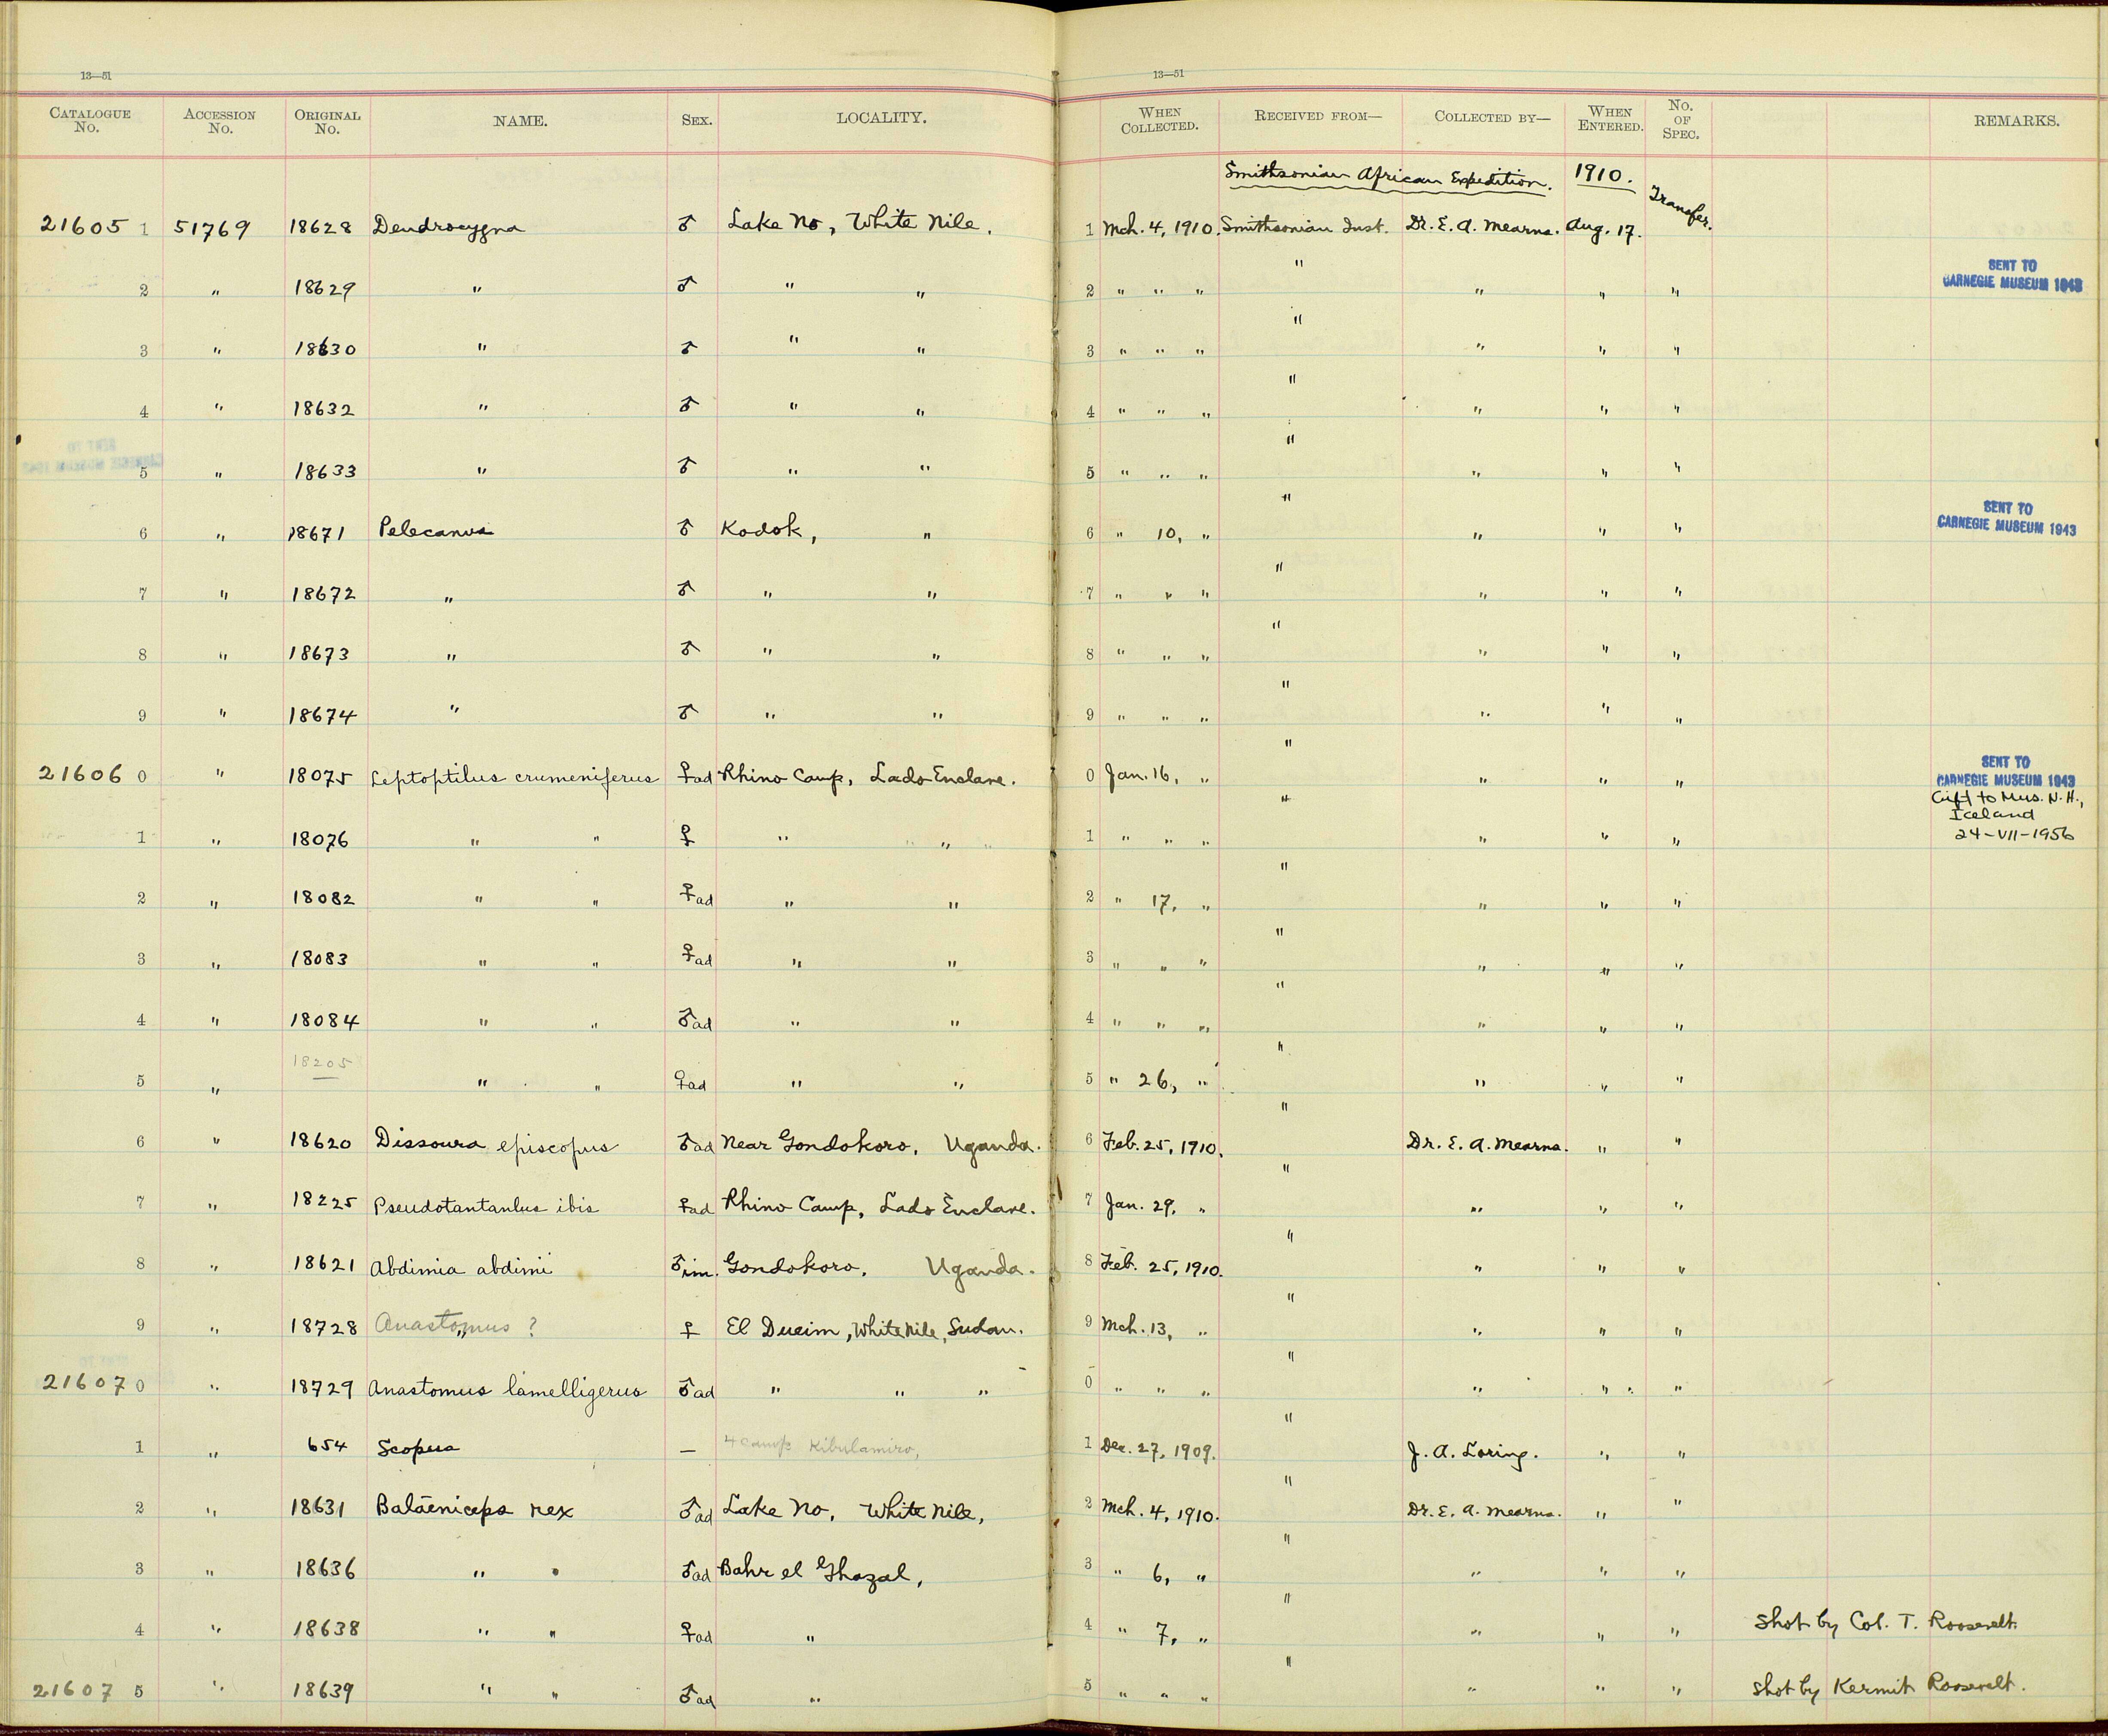 13—51
13—51
CATALOGUE No. ACCESSION No. ORIGINAL No. NAME. SEX. LOCALITY. WHEN COLLECTED. RECEIVED FROM— COLLECTED BY— WHEN ENTERED. No. OF SPEC. REMARKS.
Smithsonian African Expedition. 1910.
21605 1 51769 18628 Dendrocygna ♂ Lake No, White Nile. 1 Mch. 4, 1910. Smithsonian Inst. Dr. E. A. Mearns. Aug. 17. Transfer.
2 " 18629 " ♂ " " 2 " " " " " " " SENT TO CARNEGIE MUSEUM 1943
3 " 18630 " ♂ " " 3 " " " " " " "
4 " 18632 " ♂ " " 4 " " " " " " "
5 " 18633 " ♂ " " 5 " " " " " " "
6 " 18671 Pelecanus ♂ Kodok, " 6 " 10, " " " " " SENT TO CARNEGIE MUSEUM 1943
7 " 18672 " ♂ " " 7 " " " " " " "
8 " 18673 " ♂ " " 8 " " " " " " "
9 " 18674 " ♂ " " 9 " " " " " " "
21606 0 " 18075 Leptoptilus crumeniferus ♀ad Rhino Camp, Lado Enclave. 0 Jan. 16, " " " " " SENT TO CARNEGIE MUSEUM 1943
Gift to Mus. N.H., Iceland 24-VII-1956
1 " 18076 " " ♀ " " 1 " " " " " " "
2 " 18082 " " ♀ad " " 2 " 17, " " " " "
3 " 18083 " " ♀ad " " 3 " " " " " " "
4 " 18084 " " ♂ad " " 4 " " " " " " "
5 " 18205 " " ♀ad " " 5 " 26, " " " " "
6 " 18620 Dissoura episcopus ♂ad Near Gondokoro, Uganda. 6 Feb. 25, 1910. " Dr. E. A. Mearns. " "
7 " 18225 Pseudotantanlus ibis ♀ad Rhino Camp, Lado Enclave. 7 Jan. 29, " " " " "
8 " 18621 Abdimia abdimii ♂im. Gondokoro, Uganda. 8 Feb. 25, 1910. " " " "
9 " 18728 Anastomus ? ♀ El Dueim, White Nile, Sudan. 9 Mch. 13, " " " " "
21607 0 " 18729 Anastomus lamelligerus ♂ad " " " 0 " " " " " " "
1 " 654 Scopus — 4 camp Kibulamiro, 1 Dec. 27, 1909. " J. A. Loring. " "
2 " 18631 Balaeniceps rex ♂ad Lake No, White Nile, 2 Mch. 4, 1910. " Dr. E. A. Mearns. " "
3 " 18636 " " ♂ad Bahr el Ghazal, 3 " 6, " " " " "
4 " 18638 " " ♀ad " 4 " 7, " " " " " Shot by Col. T. Roosevelt.
21607 5 " 18639 " " ♂ad " 5 " " " " " " " Shot by Kermit Roosevelt.